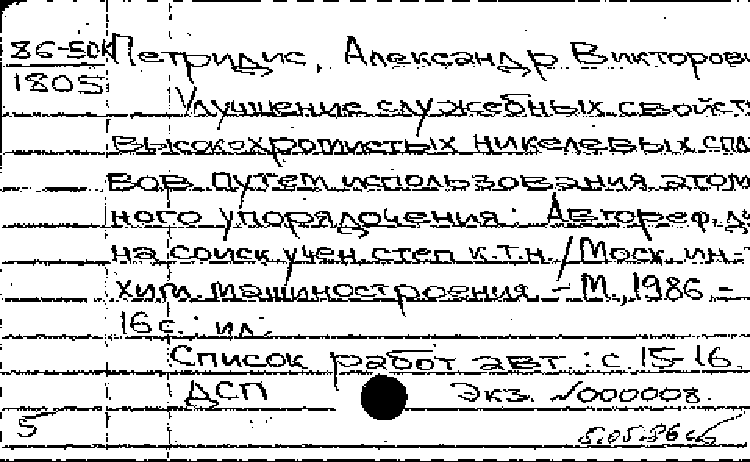 86-50к Петридис, Александр Викторови
1805
Улучшение служебных свойст
высокохромистых никелевых спла
вов путем использования атом
ного упорядочения: Автореф. д
на соиск. учен. степ. к.т.н. / Моск. ин-
хим. машиностроения. - М., 1986. -
16 с.: ил.
Список работ авт.: с. 15-16.
ДСП Экз. №000008.
5 5.05.86